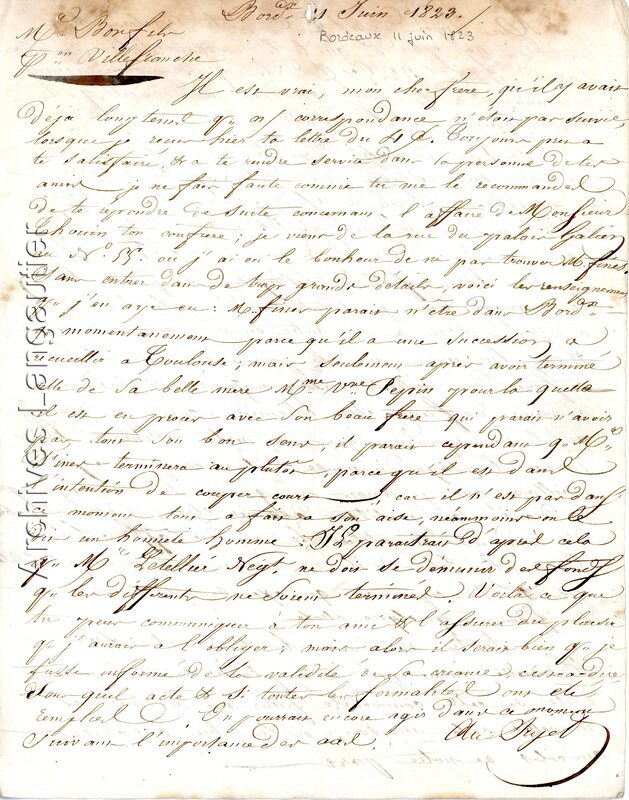 Bord.x 11 Juin 1823./
Bordeaux 11 juin 1823
Mr Bonfils
Villefranche
Il est vrai, mon cher frere, qu'il y avait
déja longtems que n/ correspondance n'était pas suivie,
lorsque je recus hier ta lettre du 4 Ct. Toujours pret a
te satisfaire, & a te rendre service dans la personne de tes
amis je ne fais faute comme tu me le recommandes
de te repondre de suite concernant l'affaire de Monsieur
Chouin ton confrere; je viens de la rue du palais Galien
No. 55. où j'ai eu le bonheur de ne pas trouver Mr fines.
Sans entrer dans de trop grands détails, voici les renseignemens
que j'en aye eu: Mr. finer parait n'être dans Bordx
que momentanement parce qu'il a une succession a
recueillir a Toulouse; mais seulement apres avoir terminé
celle de sa belle mere Mme. vve Pepin pour la quelle
il est en proces avec son beau frere qui parait n'avoir
pas tout son bon sens, il parait cependant que Mr
finer terminera au plutot, parce qu'il est dans
l'intention de couper court, car il n'est pas dans
ce moment tout a fait a son aise, néanmoins on le
dit un honnete homme. Il paraitrait d'apres cela
que Mr Letellier Negt. ne dois se demunir des fonds
que les differents ne soient terminés. Voila ce que
tu peux communiquer a ton ami & l'assurer du plaisir
que j'aurais a l'obliger; mais alors il serait bien que je
fusse informé de la validité de sa créance, c'est a dire
sous quel acte & si toutes les formalités ont été
remplies. On pourrait encore agir dans ce moment
suivant l'importance des
Archives Lengautier